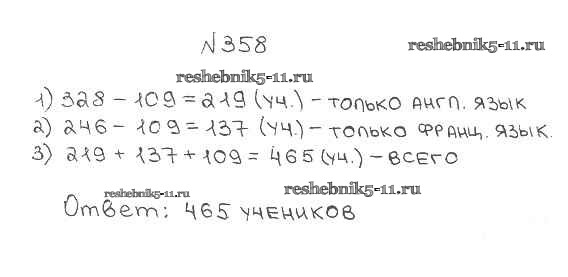 №358 reshebnik5-11.ru
reshebnik5-11.ru
1) 328 - 109 = 219 (уч.) - только англ. язык
2) 246 - 109 = 137 (уч.) - только франц. язык.
3) 219 + 137 + 109 = 465 (уч.) - всего
reshebnik5-11.ru reshebnik5-11.ru
Ответ: 465 учеников